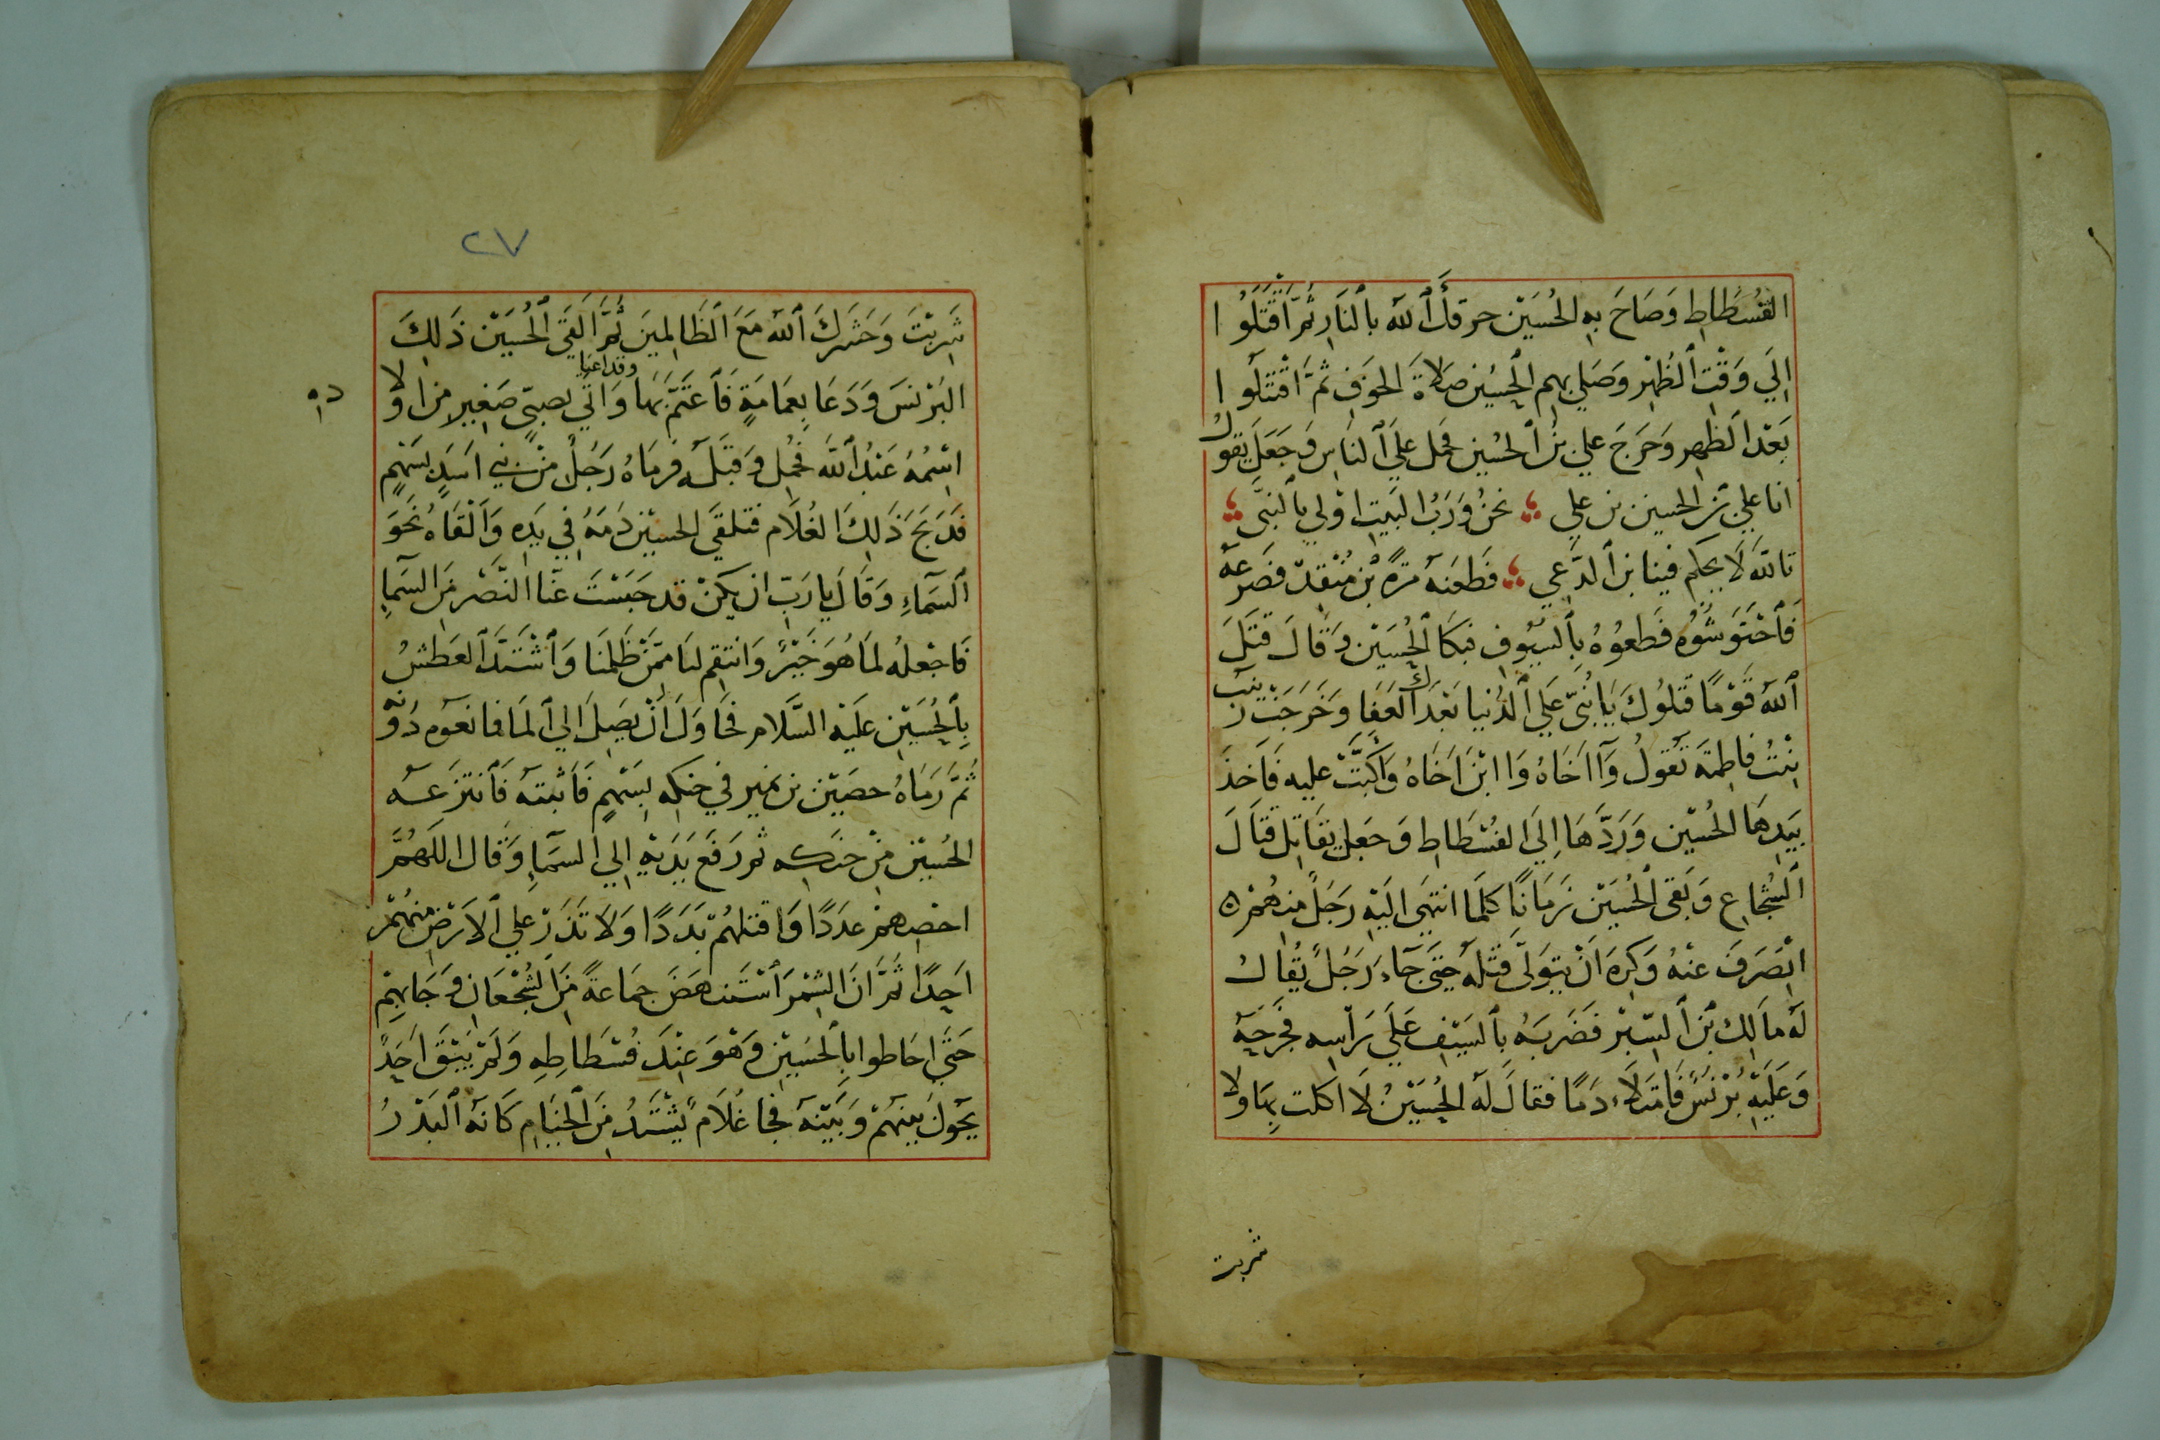 الفُسْطَاطِ وَصَاحَ بِهِ الحُسَيْن حرقكَ ٱللهُ بالنَارِ ثُمَّ اقْتَتَلُوا
اِلَي وَقْتِ ٱلظُهْر وَصَلي بهم الحُسَيْن صَلاةَ الخوَفِ ثمَّ اقْتَتَلُوا
بَعْدَ الظهر وَخَرَجَ علي بنُ ٱلحسُين فحمل عليَ ٱلناسِ وَجَعَلَ يقول
انا علي بن الحسين بن علي ؛ نحنُ وَرَبُ البَيتِ اوْلي بالنبَي ؛
تاللهَ لَا يحكم فينا بن ٱلدَّعي ؛ فَطعَنهُ مرةُ بْن مُنْقِدْ فصَرعهُ
فَٱحْتَوَشُوُه فقطعُوُهُ بِٱلسيُوفِ فبكا ٱلحُسَيْن وَقَالَ قتَلَ
ٱللهُ قَوْمًا قَتلوُكَ يَابُنيَّ عَلي ٱلدُنيا بَعْدَكَ ٱلعَفَا وَخَرَجَتْ زينب
بِنْتُ فاطِمةَ تقولُ وَآ اخَاهُ وَا ابْنَ اخَاهُ وَاكبَّتْ عليه فَاخذَ
بيَدِهَا الحُسَيْن وَرَدَّهَا اِلَيَ الفُسْطَاطِ وَجَعلَ يقَاتِل قتَالَ
ٱلشُجاعِ وَبَقى ٱلحُسَيْن زَمَانًا كلمَا انتهَي اليَهِ رَجَلُ منِهُمْ ه
انْصَرَفَ عنْهُ وَكرِهَ اَنْ يتوَلىَّ قتْلهُ حتَي جَآءَ رَجُلُ يُقاَلُ
لَهُ مالَكِ بْنَ ٱلسّبْر فضَرَبَهُ بٱلسَيْفِ عَلَي رَاسِه فجَرَحَهُ
وَعَلَيْهِ بُرْنُسُ فَامَتلَاءَ دَمًا فقالَ لَهُ الحُسَيْنُ لَا اكلت بِهَا وَلَا
شربت
٢٧
شَرِبْتَ وَحَشرَكَ ٱللهُ مَعَ ٱلظَالِمِينَ ثُمَّ القَيَ ٱلحُسَيْن ذَلِكَ
وقد اعيا
البُرْنسَ وَدَعَا بِعمَامَةٍ فَٱعتَمَّ بَهَا وَاتُي بصبيّ صَغِيرٍ من اولادِه
اسْمُهُ عَبْدُ ٱللهَ فحُملِ وَقبَلَهُ فرمَاهُ رَجُلُ منْ بني اسَدٍ بسَهْمٍ
فدَبَحَ ذَلِكَ الغُلَام فتلقَي الحسيَن دَمَهُ في يَدِه وَالْقَاهُ نَحَوَ
ٱلسَمَآءِ وَقالَ يا رَبِّ ان يكنْ قد حَبَسْتَ عنّا النَّصْر مِنَ السمَآءِ
فَاجْعلهُ لمَا هُوَ خَيْرُ وَانتقِم لنَا ممَّنْ ظَلمنَا وَٱشْتَدَّ ٱلعَطشُ
بِٱلحُسَيْن علَيْه السَّلام فحَاوَلَ اَنْ يصَِلَ الي ٱلمَا فمانعَوُه دُونهُ
ثُمَّ رَمَاهُ حصَيْن بن نمير في حنكه بسَهْمٍ فَاثبتهُ فَٱنتزَعهُ
الحُسَيْن مِنْ حنكِه ثم رَفعَ يَدَيْهِ اِلي السمَآءِ وَقال اللهُمَّ
احْصِهمْ عدَدًا وَاقتلهُمْ بَدَدًا وَلَا تَذَرْ علي ٱلارْضِ منهُمْ
احَدًا ثمَّ انَ الشِمْرَ ٱسْتَنهَضَ جمَاعةً مِنَ الشُجْعانِ وَجَا بِهمْ
حَتَي احَاطوا بِٱلحُسَيْن وَهْوَ عِنْدَ فُسْطاطِهِ وَلَمْ يَبْقَ اَحَدُ
يحوَلُ بينَهمْ وَبَيْنهُ فجا غُلَامُ يَشْتَدُ مِنَ ٱلخيَامِ كَانهُ ٱلبَدْرُ